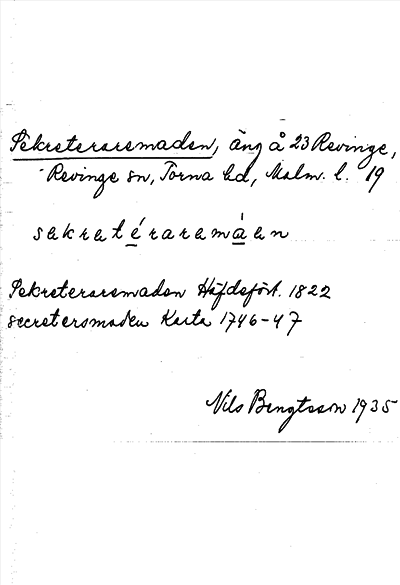 Sekreteraremaden, äng å 23 Revinge,
Revinge sn, Torna hd, Malm. l. 19
sekretéraremáen
Sekreteraremaden Häfdefört. 1822
secretersmaden Karta 1746-47
Nils Bengtsson 1935